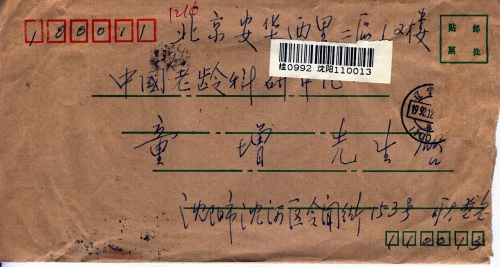 100011
北京安华西里二區12楼
貼郵
票处
挂0992 沈阳110013
中國老龄科研中心
童增先生啓
沈阳市沈河区会闻街153号
110013